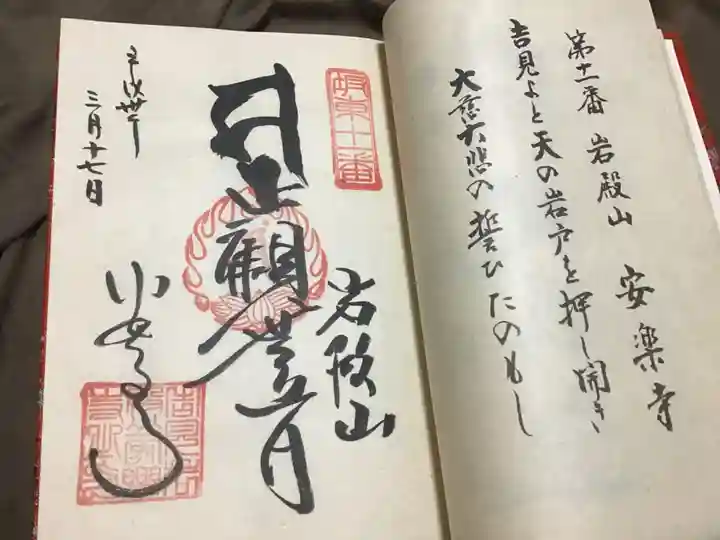 第十一番 岩殿山 安楽寺
吉見よと天の岩戸を押し開き
大慈大悲の誓ひたのもし
坂東十一番
岩殿山
観世音
平成卅年
三月十七日